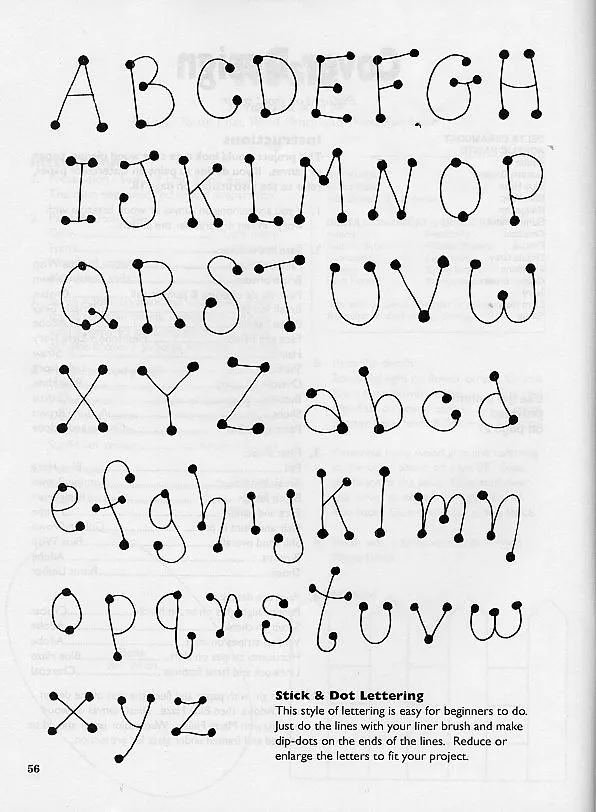 A B C D E F G H
I J K L M N O P
Q R S T U V W
X Y Z a b c d
e f g h i j k l m n
o p q r s t u v w
x y z
Stick & Dot Lettering
This style of lettering is easy for beginners to do.
Just do the lines with your liner brush and make
dip-dots on the ends of the lines. Reduce or
enlarge the letters to fit your project.
56